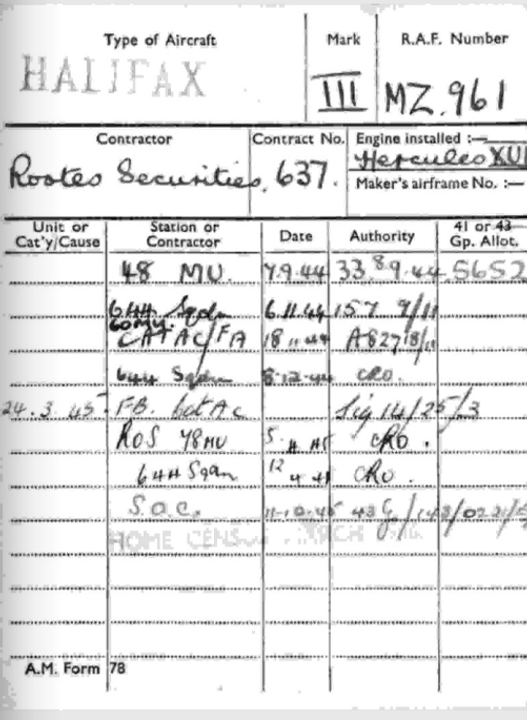 Type of Aircraft Mark R.A.F. Number
HALIFAX III MZ.961
Contractor Contract No. Engine installed :—
Rootes Securities. 637. Hercules XVI
Maker's airframe No. :—
Unit or Cat'y/Cause Station or Contractor Date Authority 41 or 43 Gp. Allot.
48 MU. 7.9.44 33 8 9.44 5652
644 Sqdn 6.11.44 157 9/11
60MU.
CAT AC/FA 18 11 44 A827 18/11
644 Sqdn 8-12-44 CRO.
24.3.45. FB. Cat Ac Sig 14/25/3
ROS 78MU 5 4 45 CRO.
644 Sqdn 12 4 45 CRO.
S.O.C. 11-10-45 43 G/
HOME CENSUS MARCH
A.M. Form 78